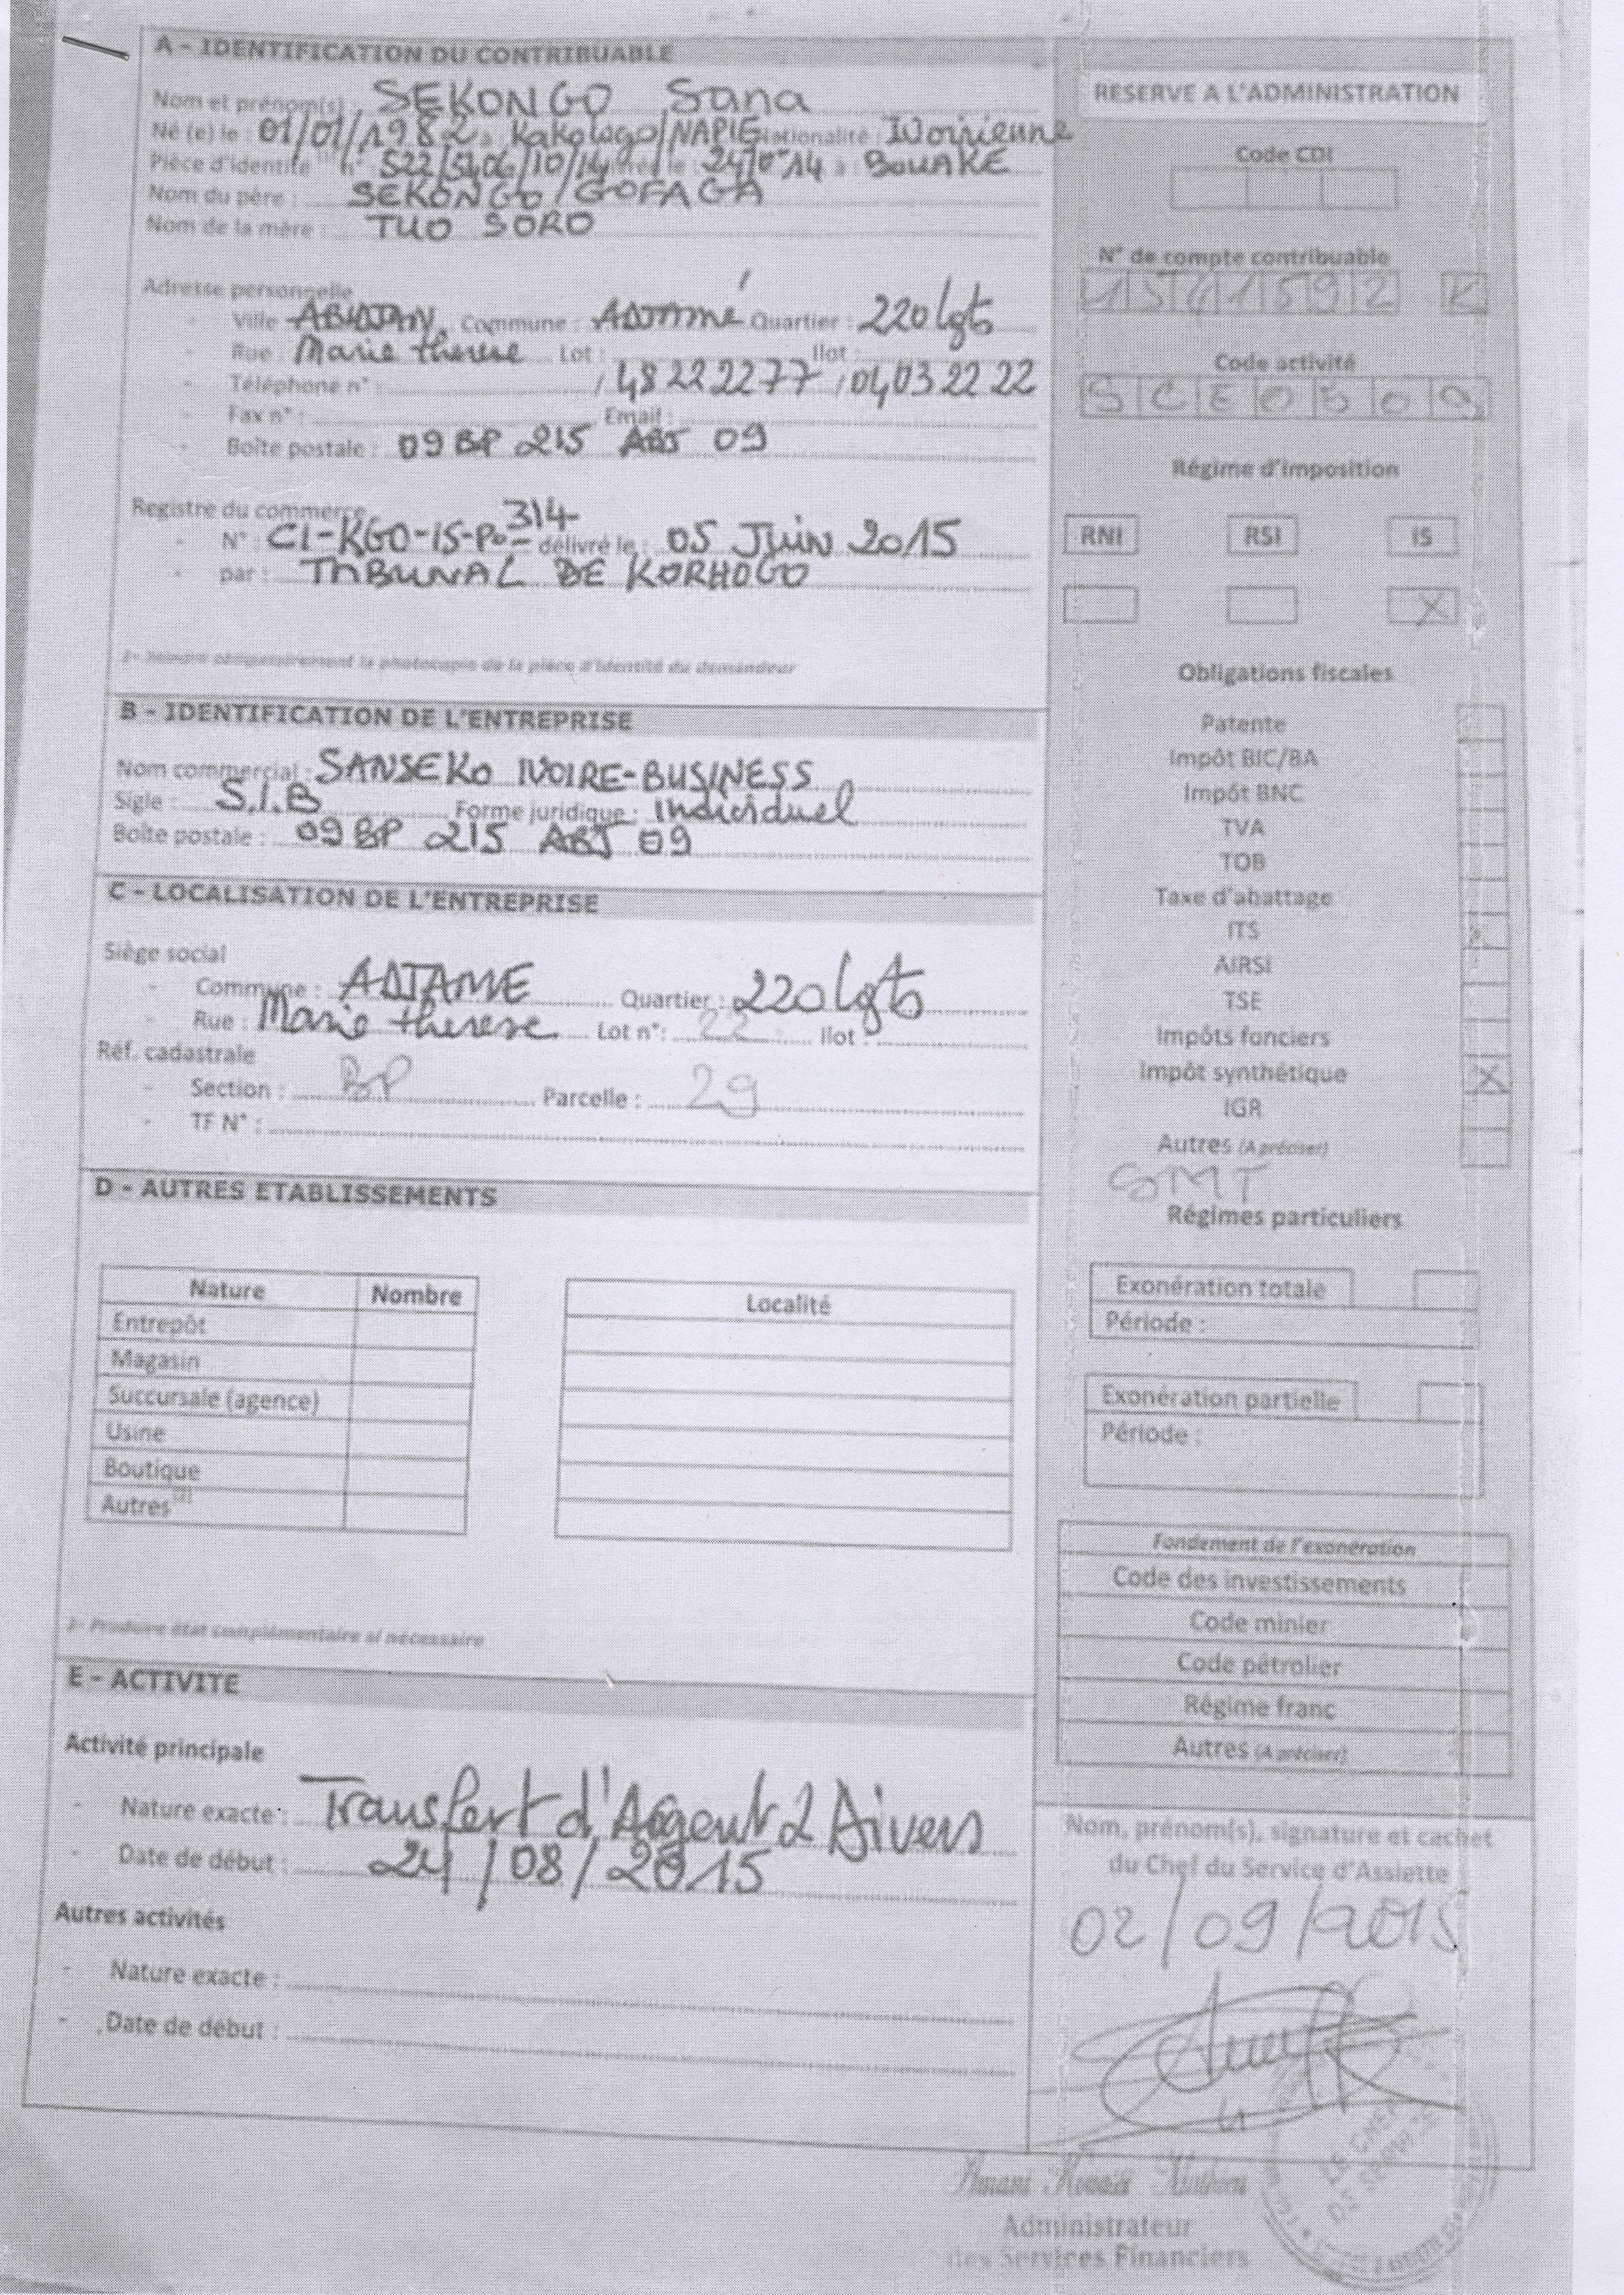 A - IDENTIFICATION DU CONTRIBUABLE
Nom et prénom(s) : SEKONGO Sana
Né (e) le : 01/01/1982 à : Kakologo/NAPIE Nationalité : Ivoirienne
Pièce d'identité (1) n° : le : à : BOUAKE
Nom du père : SEKONGO GOFAGA
Nom de la mère : TUO SORO
Adresse personnelle
- Ville ABIDJAN Commune : ADJAMé Quartier : 220 lgts
- Rue : Marie therese Lot : Ilot :
- Téléphone n° : / 48 22 22 77 / 04 03 22 22
- Fax n° : Email :
- Boîte postale : 09 BP 215 ABJ 09
Registre du commerce
- N° : CI-KGO-15-P0-314- délivré le : 05 Juin 2015
- par : TRIBUNAL DE KORHOGO
1- Joindre obligatoirement la photocopie de la pièce d'identité du demandeur
B - IDENTIFICATION DE L'ENTREPRISE
Nom commercial : SANSEKO IVOIRE-BUSINESS
Sigle : S.I.B Forme juridique : Individuel
Boîte postale : 09 BP 215 ABJ 09
C - LOCALISATION DE L'ENTREPRISE
Siège social
- Commune : ADJAME Quartier : 220 lgts
- Rue : Marie therese Lot n°: 22 Ilot :
Réf. cadastrale
- Section : BP Parcelle : 29
- TF N° :
D - AUTRES ETABLISSEMENTS
Nature Nombre Localité
Entrepôt
Magasin
Succursale (agence)
Usine
Boutique
Autres (2)
2- Produire état complémentaire si nécessaire
E - ACTIVITE
Activité principale
- Nature exacte : Transfert d'Argent & Divers
- Date de début : 24/08/2015
Autres activités
- Nature exacte :
- Date de début :
RESERVE A L'ADMINISTRATION
Code CDI
N° de compte contribuable
1541592 R
Code activité
SCE0500
Régime d'imposition
RNI RSI IS
X
Obligations fiscales
Patente
Impôt BIC/BA
Impôt BNC
TVA
TOB
Taxe d'abattage
ITS
AIRSI
TSE
Impôts fonciers
Impôt synthétique X
IGR
Autres (A préciser)
SMT
Régimes particuliers
Exonération totale
Période :
Exonération partielle
Période :
Fondement de l'exonération
Code des investissements
Code minier
Code pétrolier
Régime franc
Autres (A préciser)
Nom, prénom(s), signature et cachet
du Chef du Service d'Assiette
02/09/2015
LE CHEF
DE SERVICE
Amani
Administrateur
des Services Financiers